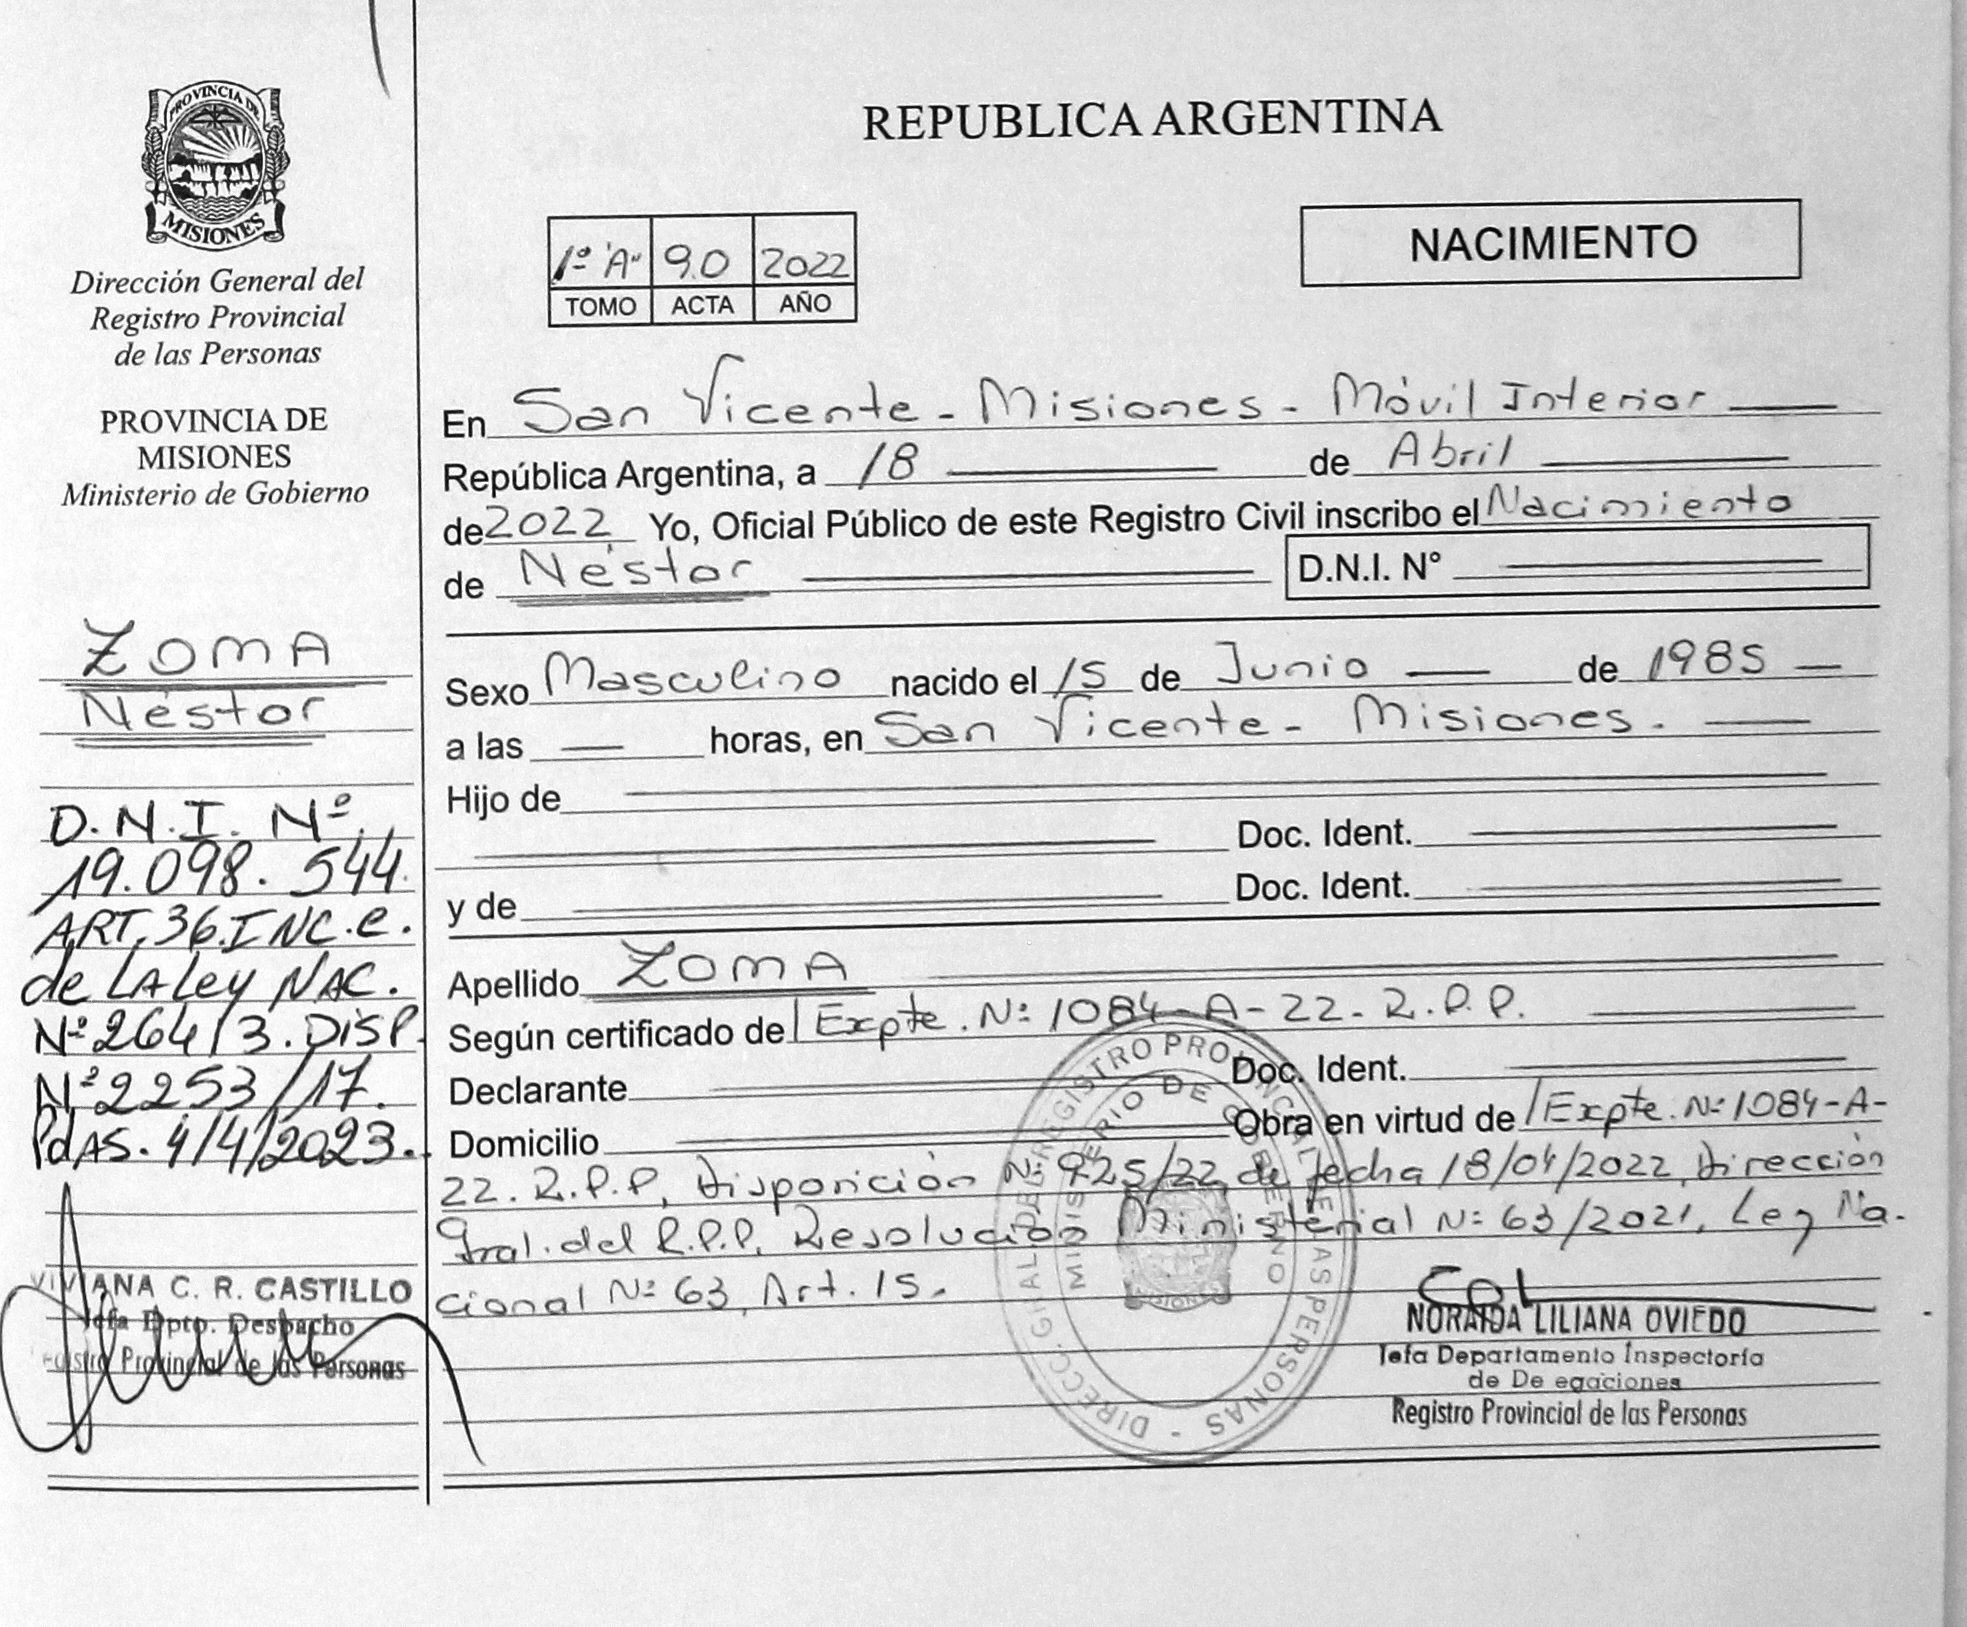 PROVINCIA DE
MISIONES
Dirección General del
Registro Provincial
de las Personas
PROVINCIA DE
MISIONES
Ministerio de Gobierno
ZOMA
Néstor
D.N.I. Nº
19.098.544.
ART. 36. INC. e.
de LA Ley NAC.
Nº 264/3. DISP.
Nº 2253/17.
PdAS. 4/4/2023.
VIVIANA C. R. CASTILLO
Jefa Dpto. Despacho
Registro Provincial de las Personas
REPUBLICA ARGENTINA
1º "A" 90 2022
TOMO ACTA AÑO
NACIMIENTO
En San Vicente - Misiones - Móvil Interior
República Argentina, a 18 de Abril
de 2022 Yo, Oficial Público de este Registro Civil inscribo el Nacimiento
de Néstor D.N.I. N°
Sexo Masculino nacido el 15 de Junio de 1985
a las horas, en San Vicente - Misiones.
Hijo de
Doc. Ident.
y de Doc. Ident.
Apellido ZOMA
Según certificado de Expte. Nº 1084-A-22-R.P.P.
Declarante Doc. Ident.
Domicilio Obra en virtud de Expte. Nº 1084-A-
22. R.P.P, Disposición Nº 925/22 de fecha 18/04/2022, Dirección
Gral. del R.P.P, Resolución Ministerial Nº 63/2021, Ley Na-
cional Nº 63, Art. 15.
DIRECC. GRAL DEL REGISTRO PROVINCIAL DE LAS PERSONAS -
MINISTERIO DE GOBIERNO
MISIONES
NORAIDA LILIANA OVIEDO
Jefa Departamento Inspectoría
de De egaciones
Registro Provincial de las Personas